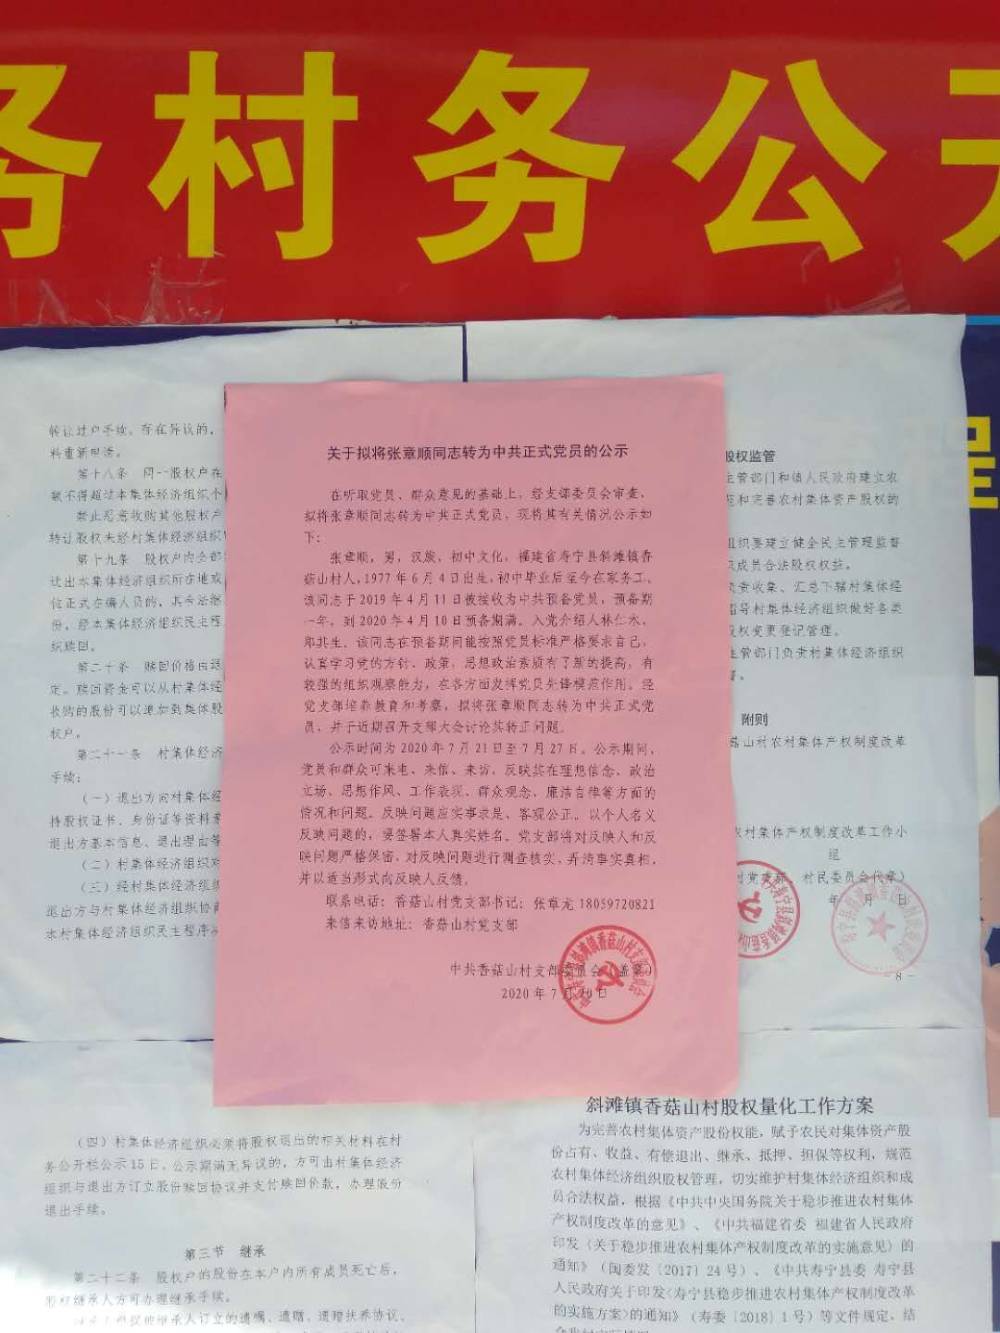 务村务公开
转让过户手续。存在异议的，
料重新申请。
第十八条 同一股权户在
额不得超过本集体经济组织个
禁止恶意收购其他股权户
转让股权未经村集体经济组织
第十九条 股权户内全部
迁出本集体经济组织所在地或
位正式在编人员的，其合法继
份。经本集体经济组织民主程
织赎回。
第二十条 赎回价格由退
定。赎回资金可以从村集体经
收购的股份可以追加到集体股
权户。
第二十一条 村集体经济
手续：
（一）退出方向村集体经
持股权证书、身份证等资料
退出方基本信息、退出理由等
（二）村集体经济组织对
（三）经村集体经济组织
退出方与村集体经济组织协商
本村集体经济组织民主程序
关于拟将张章顺同志转为中共正式党员的公示
在听取党员、群众意见的基础上，经支部委员会审查，
拟将张章顺同志转为中共正式党员，现将其有关情况公示如
下：
张章顺，男，汉族，初中文化，福建省寿宁县斜滩镇香
菇山村人，1977年6月4日出生，初中毕业后至今在家务工。
该同志于2019年4月11日被接收为中共预备党员，预备期
一年，到2020年4月10日预备期满。入党介绍人林仁水、
郑共生。该同志在预备期间能按照党员标准严格要求自己，
认真学习党的方针、政策，思想政治素质有了新的提高，有
较强的组织观察能力，在各方面发挥党员先锋模范作用。经
党支部培养教育和考察，拟将张章顺同志转为中共正式党
员，并于近期召开支部大会讨论其转正问题。
公示时间为2020年7月21日至7月27日。公示期间，
党员和群众可来电、来信、来访，反映其在理想信念、政治
立场、思想作风、工作表现、群众观念、廉洁自律等方面的
情况和问题。反映问题应实事求是、客观公正。以个人名义
反映问题的，要签署本人真实姓名。党支部将对反映人和反
映问题严格保密，对反映问题进行调查核实，弄清事实真相，
并以适当形式向反映人反馈。
联系电话：香菇山村党支部书记：张章龙 18059720821
来信来访地址：香菇山村党支部
中共香菇山村支部委员会（盖章）
2020年7月20日
股权监管
主管部门和镇人民政府建立农
范和完善农村集体资产股权的
组织要建立健全民主管理监督
织成员合法股权权益。
负责收集、汇总下辖村集体经
指导村集体经济组织做好各类
股权变更登记管理。
主管部门负责村集体经济组织
督。
附则
菇山村农村集体产权制度改革
农村集体产权制度改革工作小
组
村民委员会代章）
年 月 日
8 -
程
（四）村集体经济组织必须将股权退出的相关材料在村
务公开栏公示15日。公示期满无异议的，方可由村集体经济
组织与退出方订立股份赎回协议并支付赎回价款，办理股份
退出手续。
第三节 继承
第二十二条 股权户的股份在本户内所有成员死亡后，
股权继承人方可办理继承手续。
继承人订立的遗嘱、遗赠、遗赠扶养协议、
斜滩镇香菇山村股权量化工作方案
为完善农村集体资产股份权能，赋予农民对集体资产股
份占有、收益、有偿退出、继承、抵押、担保等权利，规范
农村集体经济组织股权管理，切实维护村集体经济组织和成
员合法权益，根据《中共中央国务院关于稳步推进农村集体
产权制度改革的意见》、《中共福建省委 福建省人民政府
印发〈关于稳步推进农村集体产权制度改革的实施意见〉的
通知》（闽委发〔2017〕24号）、《中共寿宁县委 寿宁县
人民政府关于印发〈寿宁县稳步推进农村集体产权制度改革
的实施方案〉的通知》（寿委〔2018〕1号）等文件规定，结